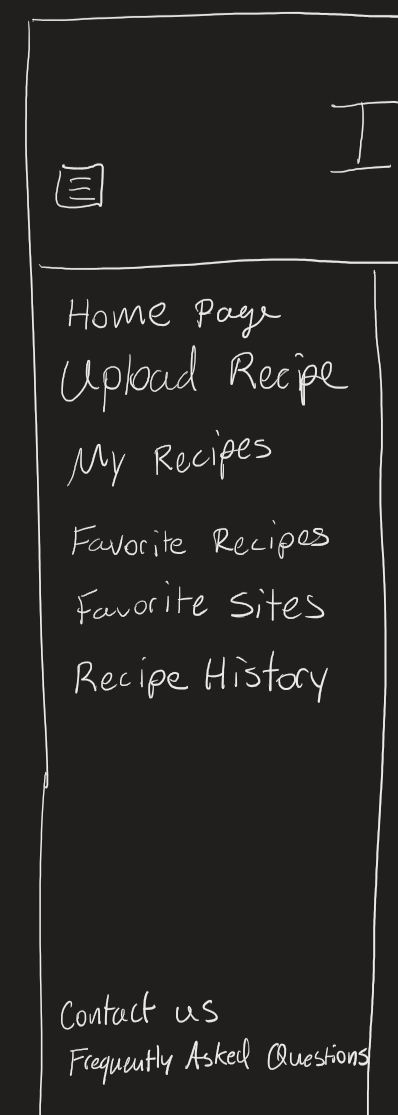 I
Home Page
Upload Recipe
My Recipes
Favorite Recipes
Favorite Sites
Recipe History
Contact us
Frequently Asked Questions